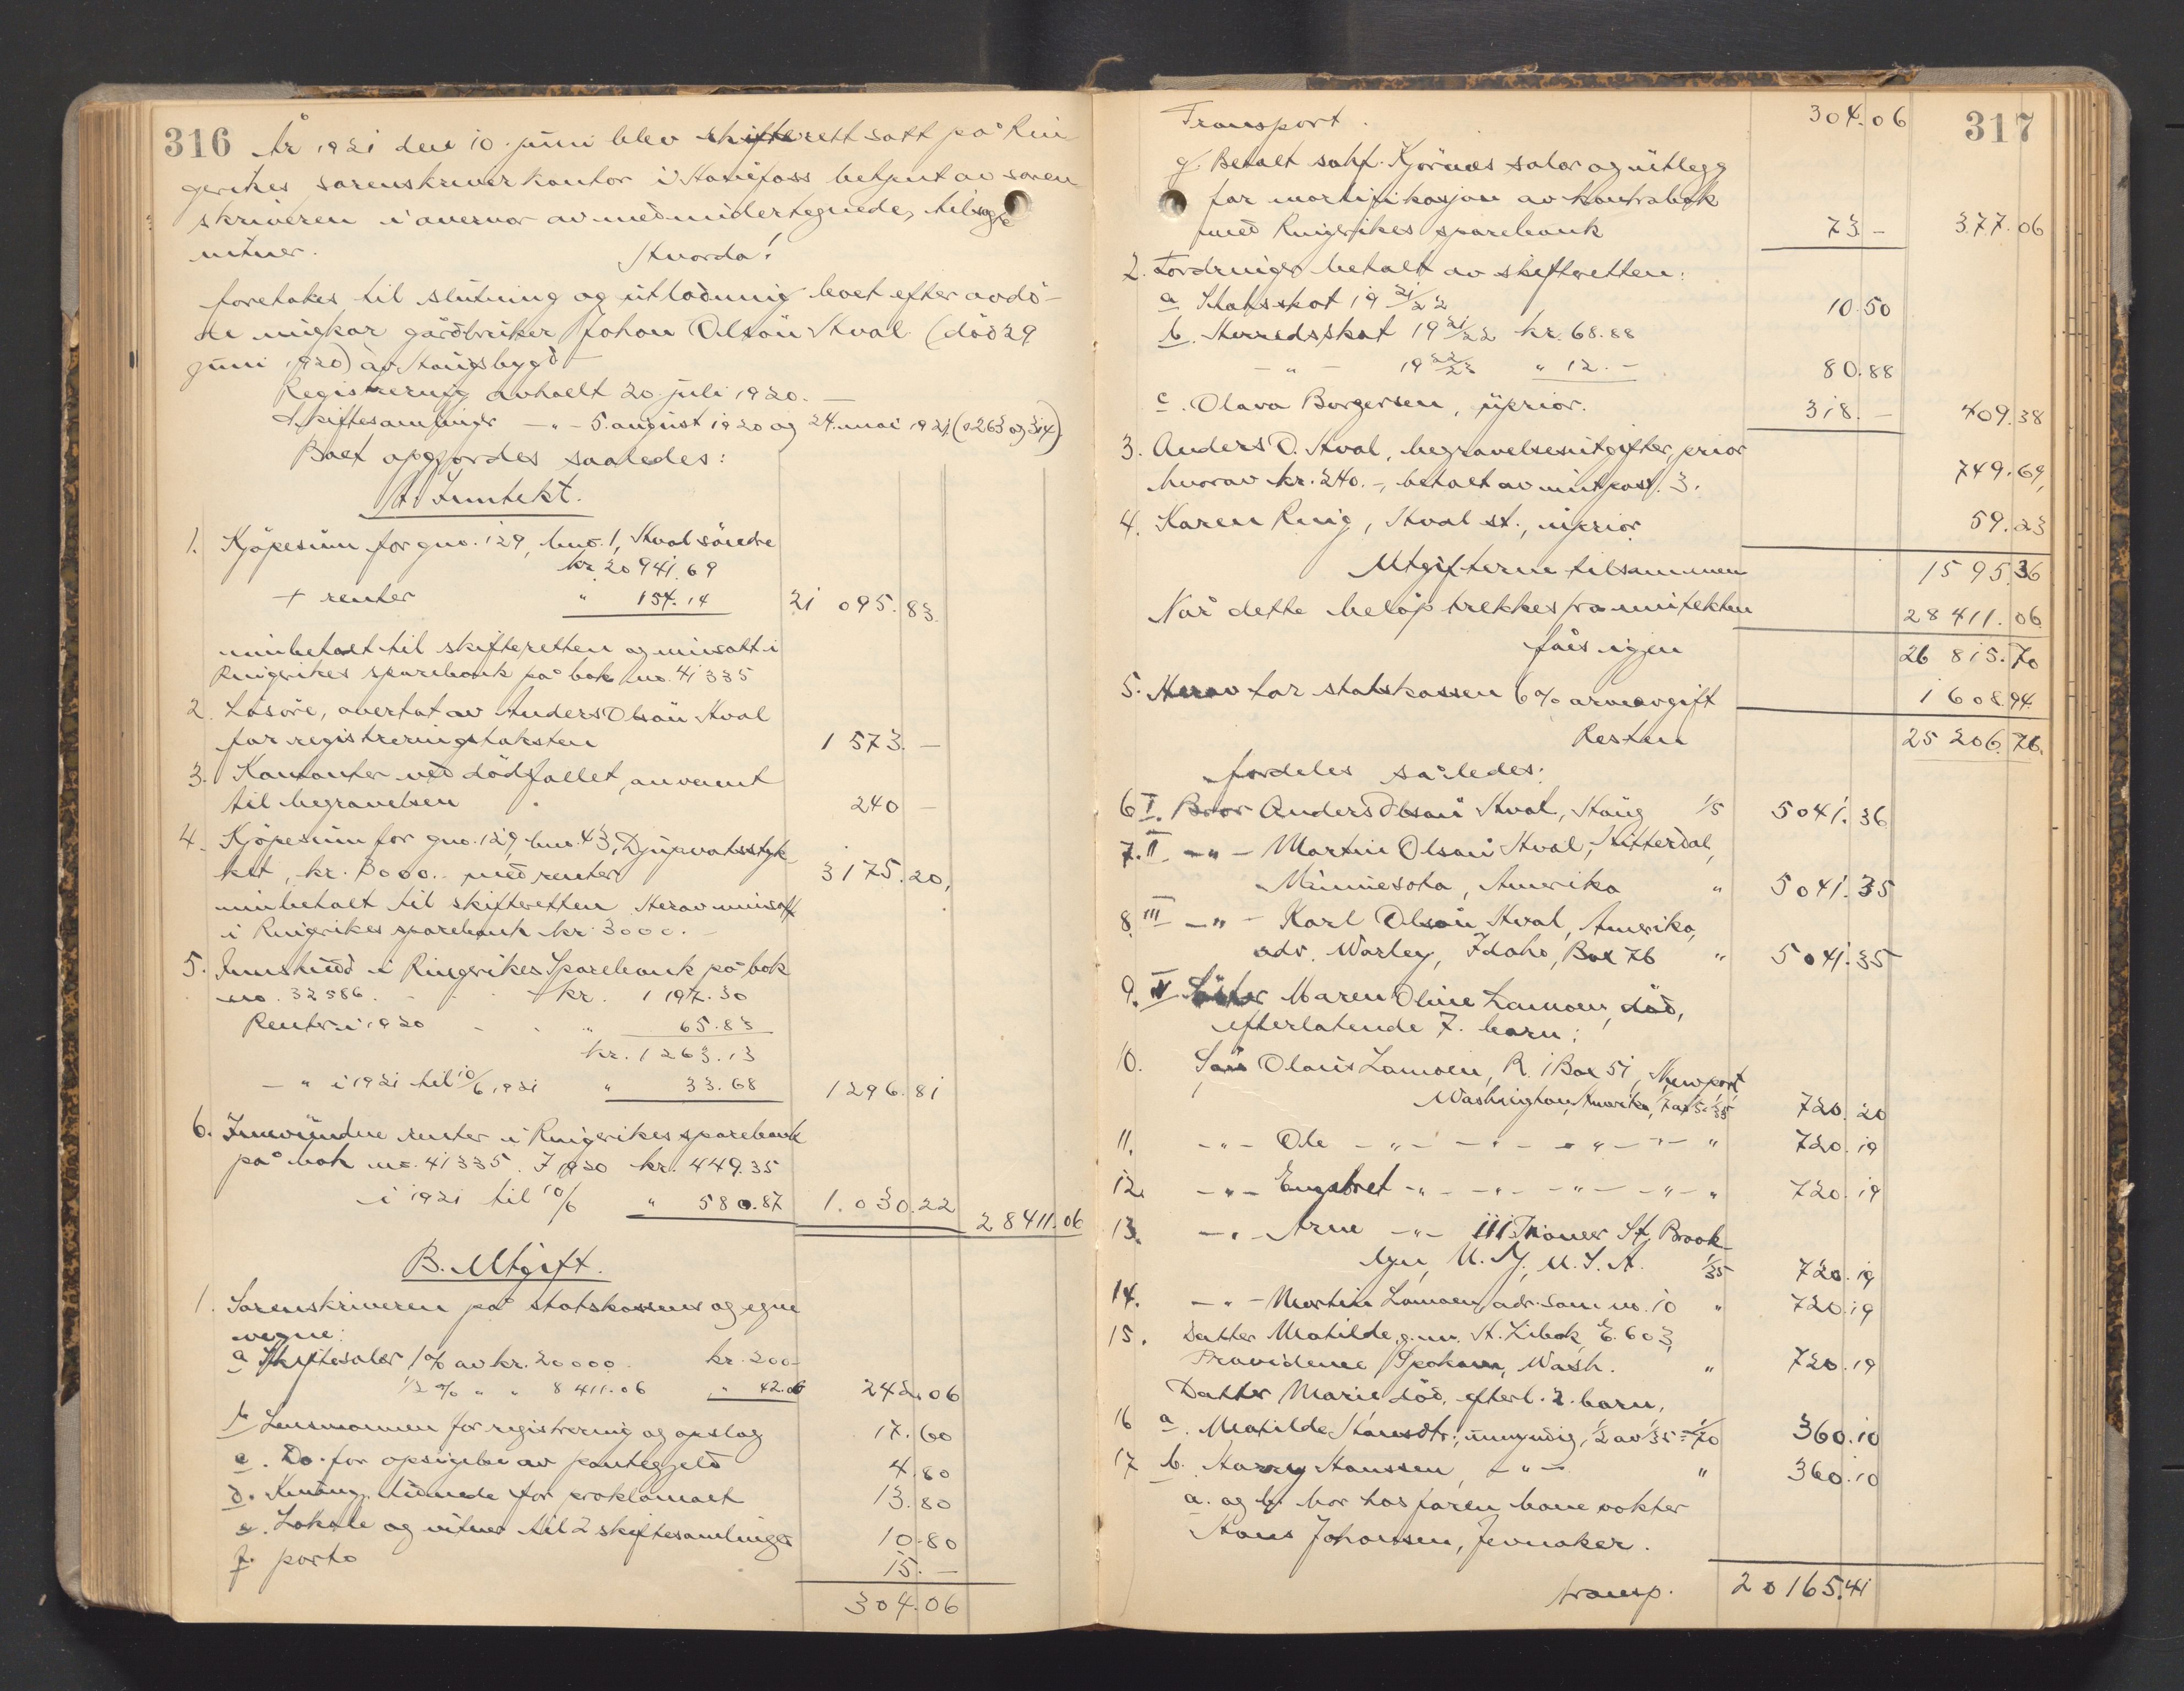 316
År 1921 den 10. juni blev skifterett satt på Rin
gerikes sorenskriverkontor i Hønefoss betjent av soren
skriveren i overvær av medundertegnede, tilsagte
vitner.
Hvorda!
foretokes til slutning og utlodning boet efter avdö-
de ungkar gårdbruker Johan Olsön Hval (död 29
juni 1920) av Haugsbygd
Registrering avholdt 20 juli 1920. —
Skiftesamlinger —"— 5. august 1920 og 24. mai 1921 (s 263 og 314)
Boet opgjordes saaledes:
A. Inntekt.
1. Kjöpesum for gno. 129, bno. 1, Hval söndre
kr. 20 941.69
+ renter " 154.14 21 095.83
innbetalt til skifteretten og innsatt i
Ringerikes sparebank på bok no. 41335
2. Lösöre, overtat av Anders Olsön Hval
for registreringstaksten 1 573.—
3. Kontanter ved dödsfallet, anvendt
til begravelsen 240 —
4. Kjöpesum for gno. 129, bno. 43, Djupvatsstyk
ket, kr. 3000.- med renter 3175.20,
innbetalt til skifteretten. Herav innsatt
i Ringerikes sparebank kr. 3000.—
5. Innskudd i Ringerikes Sparebank på bok
no. 32586. kr. 1 197.30
Renter i 1920 " 65.83
kr. 1263.13
—" i 1921 til 10/6 1921 " 33.68 1296.81
6. Innvundne renter i Ringerikes sparebank
på bok no. 41335. I 1920 kr. 449.35
i 1921 til 10/6 " 580.87 1.030.22 28411.06
B. Utgift.
1. Sorenskriveren på statskassens og egne
vegne:
a Skiftesalær 1 % av kr. 20000. kr. 200-
1/2 % " " 8 411.06 " 42.06 242.06
b Lensmannen for registrering og opslag 17.60
c. Do. for opsigelse av pantegjeld 4.80
d. Kunng. tidende for proklamaet 13.80
e. Lokale og vitner til 2 skiftesamlinger 10.80
f. porto 15.—
304.06
317
Transport. 304.06
g. Betalt sakf. Kjörnes salær og utlegg
for mortifikasjon av kontrabok
med Ringerikes sparebank 73 — 377.06
2. Fordringer betalt av skifteretten:
a Statsskat 19 21/22 10.50
b. Herredsskat 19 21/22 kr. 68.88
—"— 19 22/23 " 12.— 80.88
c. Olava Borgersen, uprior. 318.— 409.38
3. Anders O. Hval, begravelsesutgifter, prior
hvorav kr. 240.-, betalt av inntpost. 3. 749.69,
4. Karen Ring, Hval st., uprior. 59.23
Utgifterne tilsammen 1595.36
Når dette belöp trekkes fra inntekten 28411.06
fåes igjen 26 815.70
5. Herav tar statskassen 6 % arveavgift 1 608.94
Resten 25 206.76.
fordeles således:
6 I. Bror Anders Olsön Hval, Haug 1/5 5041.36
7. II —"— Martin Olsön Hval, Hitterdal,
Minnesota, Amerika " 5041.35
8. III —"— Karl Olsön Hval, Amerika,
adr. Worley, Idaho, Box 76 " 5041.35
9. IV Söster Maren Oline Lamoen, död,
efterlatende 7. barn:
10. Sön Olaus Lamoen, R. 1 Box 51, Newport
Washington, Amerika, 1/7 av 1/5 = 1/35 720.20
11. —"— Ole —"— —"— —"— —"— " 720.19
12. —"— Engebret —"— —"— —"— —"— " 720.19
13. —"— Arne —"— 111 St, Brook-
lyn, N. Y., U. S. A. 1/35 720.19
14. —"— Martin Lamoen, adr. som no. 10 " 720.19
15. Datter Matilde, g. m. A. Libak, E. 603,
Providence, Spokane, Wash. " 720.19
Datter Marie död, efterl. 2. barn,
16 a. Matilde Hansdtr., umyndig, 1/2 av 1/35 = 1/70 360.10
17 b. Harry Hanssen, —"— " 360.10
a. og b. bor hos faren banevokter
Hans Johanssen, Jevnaker.
transp. 20165.41